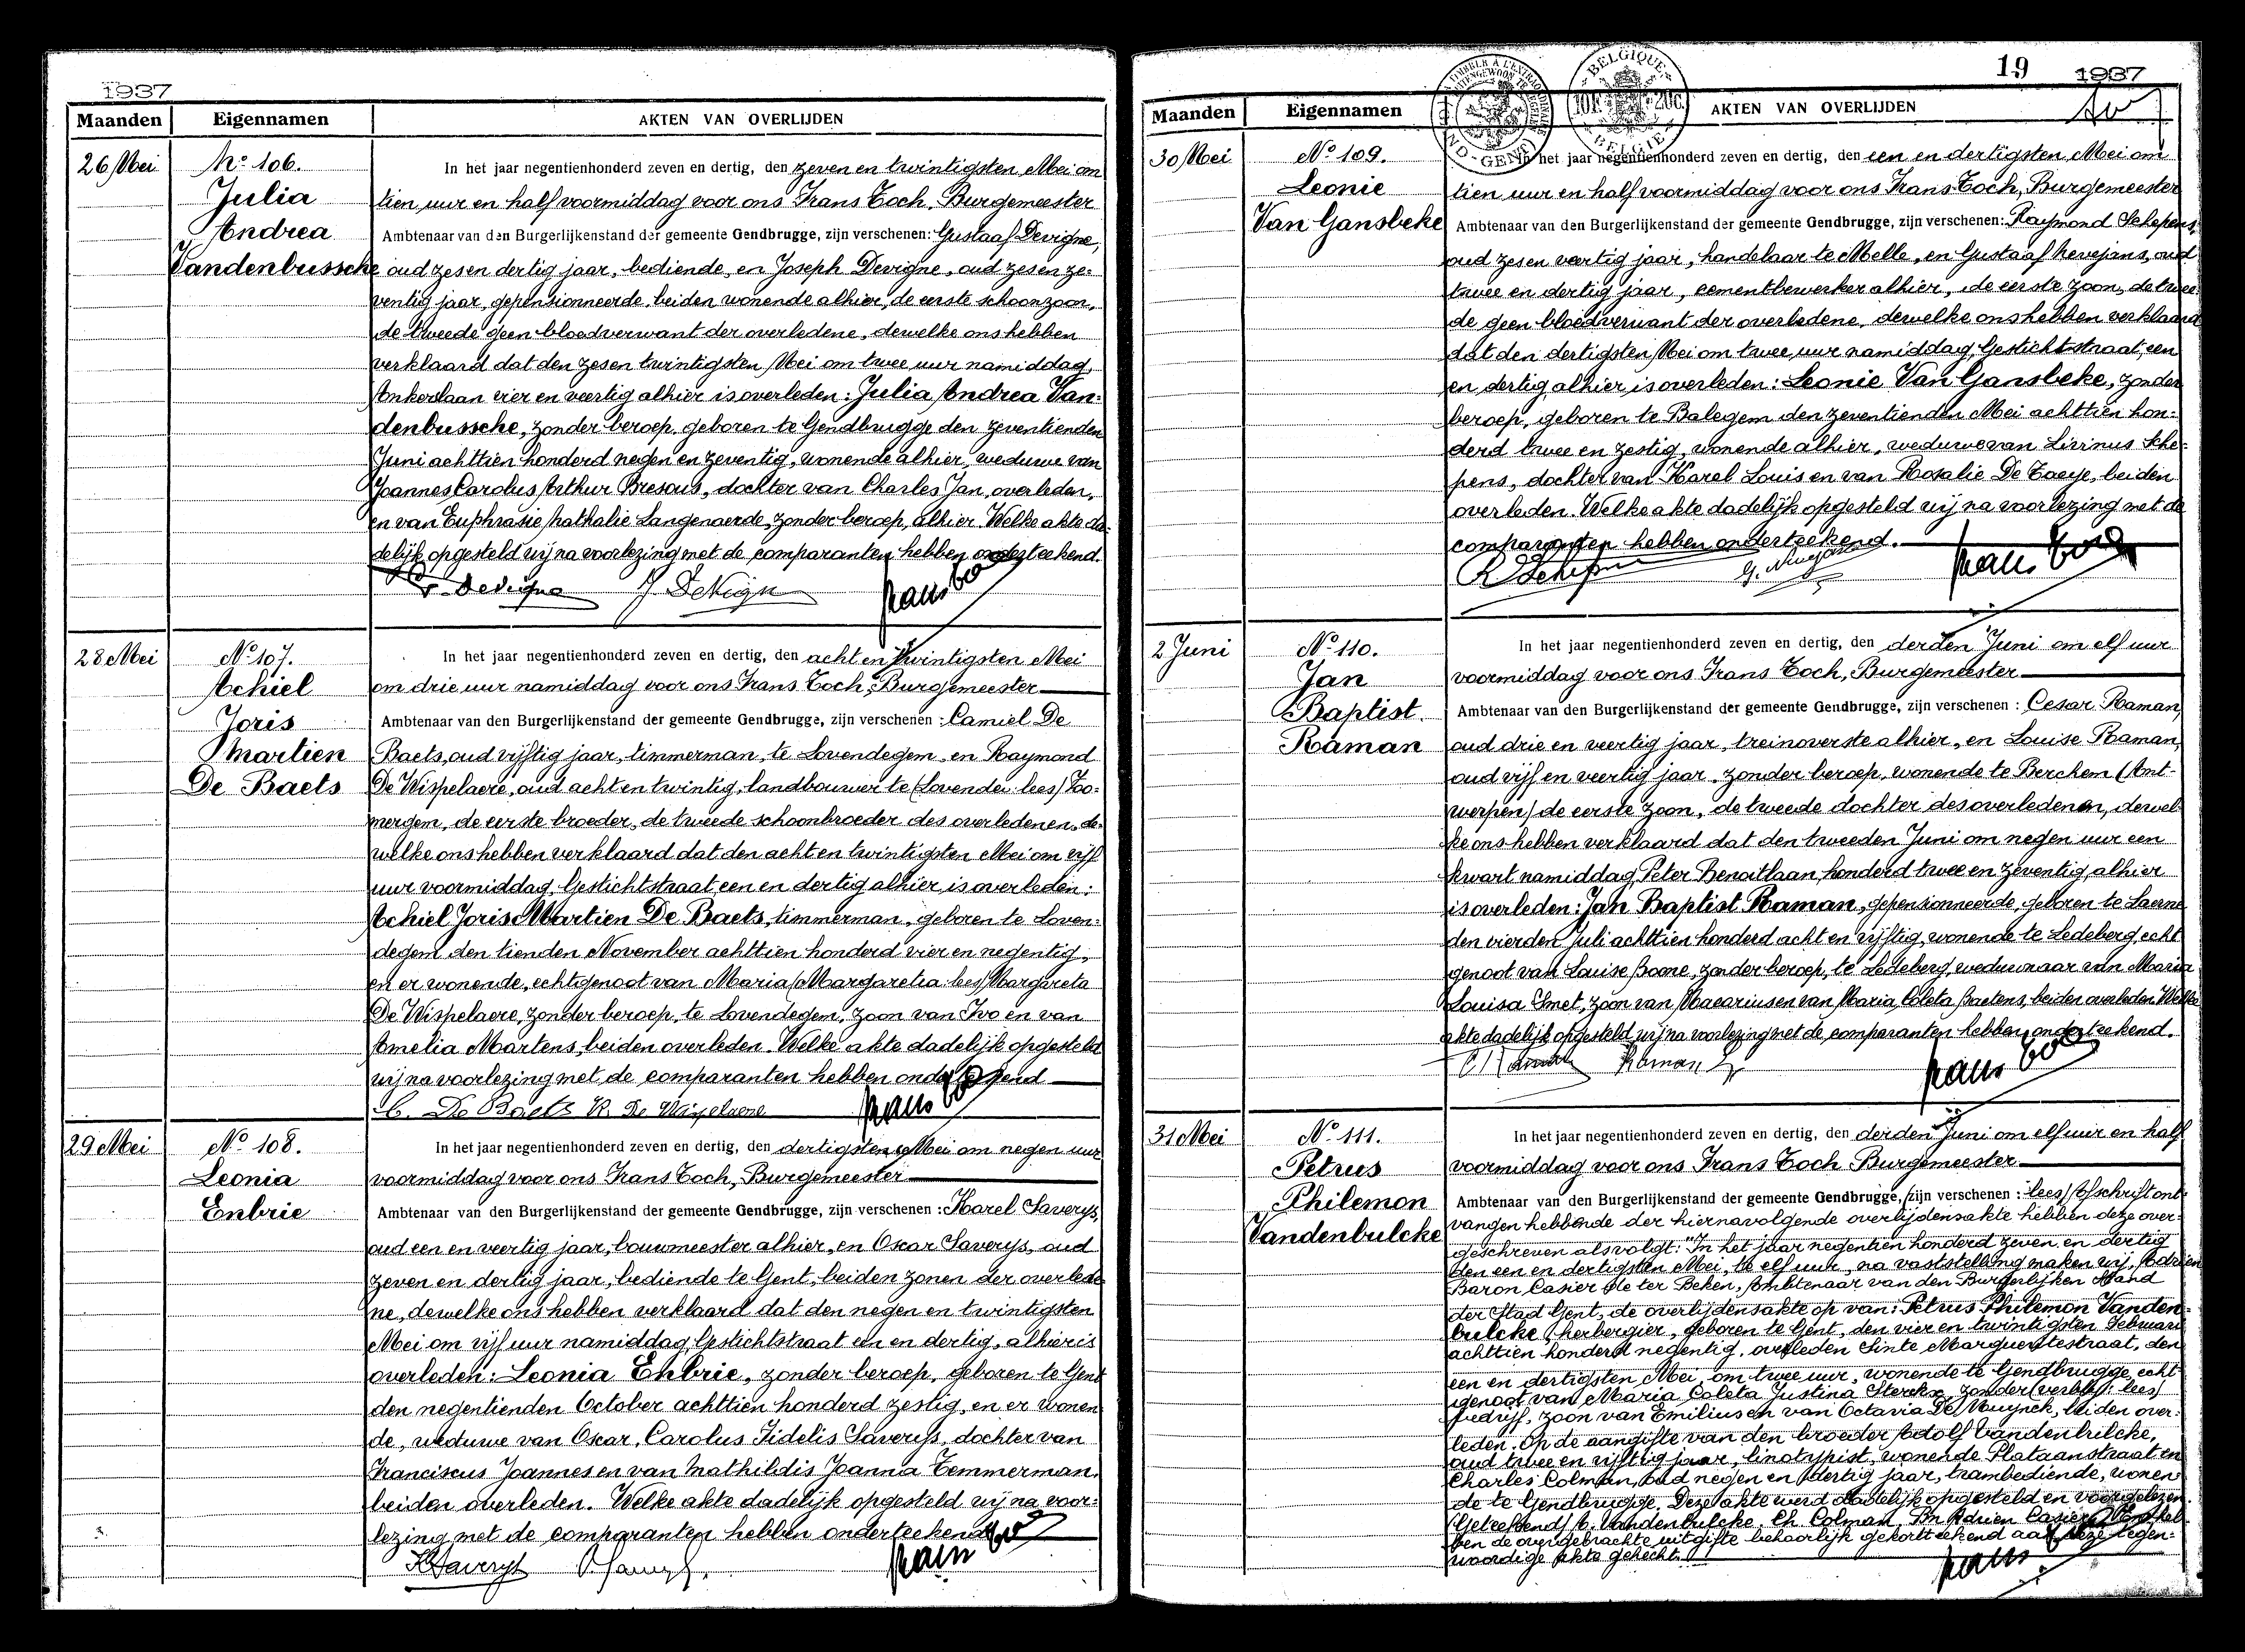 1937
Maanden Eigennamen AKTEN VAN OVERLIJDEN
26 Mei
No 106.
Julia
Andrea
Vandenbussche
In het jaar negentienhonderd zeven en dertig, den zeven en twintigsten Mei om
tien uur en half voormiddag voor ons Frans Toch, Burgemeester
Ambtenaar van den Burgerlijkenstand der gemeente Gendbrugge, zijn verschenen: Gustaaf Devigne,
oud zes en dertig jaar, bediende, en Joseph Devigne, oud zes en ze-
ventig jaar, gepensionneerde, beiden wonende alhier, de eerste schoonzoon,
de tweede geen bloedverwant der overledene, dewelke ons hebben
verklaard dat den zes en twintigsten Mei om twee uur namiddag,
Ankerslaan vier en veertig alhier is overleden: Julia Andrea Van-
denbussche, zonder beroep, geboren te Gendbrugge den zeventienden
Juni achttien honderd negen en zeventig, wonende alhier, weduwe van
Joannes Carolus Arthur Bresous, dochter van Charles Jan, overleden,
en van Euphrasie Nathalie Langenaerde, zonder beroep, alhier. Welke akte da-
delijk opgesteld wij na voorlezing met de comparanten hebben onderteekend.
G. Devigne J. Devigne Frans Toch
28 Mei
No 107.
Achiel
Joris
Martien
De Baets
In het jaar negentienhonderd zeven en dertig, den acht en twintigsten Mei
om drie uur namiddag voor ons Frans Toch, Burgemeester
Ambtenaar van den Burgerlijkenstand der gemeente Gendbrugge, zijn verschenen: Camiel De
Baets, oud vijftig jaar, timmerman, te Lovendegem, en Raymond
De Wispelaere, oud acht en twintig, landbouwer te (Lovende: lees) Zo-
mergem, de eerste broeder, de tweede schoonbroeder des overledenen, de-
welke ons hebben verklaard dat den acht en twintigsten Mei om vijf
uur voormiddag, Gestichtstraat een en dertig alhier is overleden:
Achiel Joris Martien De Baets, timmerman, geboren te Loven-
degem den tienden November achttien honderd vier en negentig,
en er wonende, echtgenoot van Maria (Margaretia: lees) Margareta
De Wispelaere, zonder beroep, te Lovendegem, zoon van Ivo en van
Amelia Martens, beiden overleden. Welke akte dadelijk opgesteld
wij na voorlezing met de comparanten hebben onderteekend
C. De Baets R. De Wispelaere Frans Toch
29 Mei
No 108.
Leonia
Enbrie
In het jaar negentienhonderd zeven en dertig, den dertigsten Mei om negen uur
voormiddag voor ons Frans Toch, Burgemeester
Ambtenaar van den Burgerlijkenstand der gemeente Gendbrugge, zijn verschenen: Karel Saverys,
oud een en veertig jaar, bouwmeester alhier, en Oscar Saverys, oud
zeven en dertig jaar, bediende te Gent, beiden zonen der overlede-
ne, dewelke ons hebben verklaard dat den negen en twintigsten
Mei om vijf uur namiddag, Gestichtstraat een en dertig, alhier is
overleden: Leonia Enbrie, zonder beroep, geboren te Gent
den negentienden October achttien honderd zestig, en er wonen-
de, weduwe van Oscar, Carolus Fidelis Saverys, dochter van
Franciscus Joannes en van Mathildis Joanna Temmerman,
beiden overleden. Welke akte dadelijk opgesteld wij na voor-
lezing met de comparanten hebben onderteekend
K Saverys O. Saverys Frans Toch
19 1937
Maanden Eigennamen AKTEN VAN OVERLIJDEN
30 Mei
No 109.
Leonie
Van Gansbeke
In het jaar negentienhonderd zeven en dertig, den een en dertigsten Mei om
tien uur en half voormiddag voor ons Frans Toch, Burgemeester
Ambtenaar van den Burgerlijkenstand der gemeente Gendbrugge, zijn verschenen: Raymond Schepens,
oud zes en veertig jaar, handelaar te Melle, en Gustaaf Nevejans, oud
twee en dertig jaar, cementbewerker alhier, de eerste zoon, de twee-
de geen bloedverwant der overledene, dewelke ons hebben verklaard
dat den dertigsten Mei om twee uur namiddag, Gestichtstraat, een
en dertig, alhier is overleden: Leonie Van Gansbeke, zonder
beroep, geboren te Balegem den zeventienden Mei achttien hon-
derd twee en zestig, wonende alhier, weduwe van Livinus Sche-
pens, dochter van Karel Louis en van Rosalie De Taeye, beiden
overleden. Welke akte dadelijk opgesteld wij na voorlezing met de
comparanten hebben onderteekend.
R Schepens G. Nevejans Frans Toch
2 Juni
No 110.
Jan
Baptist
Raman
In het jaar negentienhonderd zeven en dertig, den derden Juni om elf uur
voormiddag voor ons Frans Toch, Burgemeester
Ambtenaar van den Burgerlijkenstand der gemeente Gendbrugge, zijn verschenen: Cesar Raman,
oud drie en veertig jaar, treinoverste alhier, en Louise Raman,
oud vijf en veertig jaar, zonder beroep, wonende te Berchem (Ant-
werpen) de eerste zoon, de tweede dochter des overledenen, dewel-
ke ons hebben verklaard dat den tweeden Juni om negen uur een
kwart namiddag, Peter Benoitlaan, honderd twee en zeventig, alhier
is overleden: Jan Baptist Raman, gepensionneerde, geboren te Laerne
den vierden Juli achttien honderd acht en vijftig, wonende te Ledeberg, echt-
genoot van Louise Boone, zonder beroep, te Ledeberg, weduwnaar van Maria
Louisa Smet, zoon van Macarius en van Maria, Coleta Baetens, beiden overleden. Welke
akte dadelijk opgesteld wij na voorlezing met de comparanten hebben onderteekend.
C Raman Raman L Frans Toch
31 Mei
No 111.
Petrus
Philemon
Vandenbulcke
In het jaar negentienhonderd zeven en dertig, den derden Juni om elf uur en half
voormiddag voor ons Frans Toch Burgemeester
Ambtenaar van den Burgerlijkenstand der gemeente Gendbrugge, (zijn verschenen: lees) Afschrift ont-
vangen hebbende der hiernavolgende overlijdensakte hebben deze over-
geschreven als volgt: "In het jaar negentien honderd zeven en dertig
den een en dertigsten Mei, te elf uur, na vaststelling maken wij, Adrien
Baron Casier de ter Beken, Ambtenaar van den Burgerlijken Stand
der Stad Gent, de overlijdensakte op van: Petrus Philemon Vanden-
bulcke, herbergier, geboren te Gent, den vier en twintigsten Februari
achttien honderd negentig, overleden Sinte Margueritestraat, den
een en dertigsten Mei, om twee uur, wonende te Gendbrugge, echt-
genoot van Maria Coleta Justina Sterckx, zonder (verblijf: lees)
bedrijf, zoon van Emilius en van Octavia De Muynck, beiden over-
leden. Op de aangifte van den broeder Adolf Vandenbulcke,
oud twee en vijftig jaar, linotypist, wonende Plataanstraat en
Charles Colman, oud negen en dertig jaar, trambediende, wonen-
de te Gendbrugge. Deze akte werd dadelijk opgesteld en voorgelezen.
(Geteekend) A. Vandenbulcke, Ch. Colman, Bn Adrien Casier. Wij heb-
ben de overgebrachte uitgifte behoorlijk gekortteekend aan deze tegen-
woordige akte gehecht.
Frans